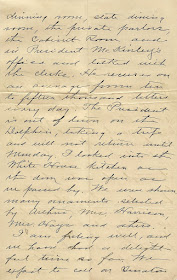 dining room, state dining
room, the private parlors,
the Cabinet Room and
in President McKinley's
office and talked with
the clerks. He receives on
an average from ten
to fifteen thousand letters
every day. The President
is out of town on the
Dolphin, taking a trip
and will not return until
Monday. I looked into the
White House kitchen as
the door was open as
we passed by. We were shown
many ornaments selected
by Arthur, Mrs. Harrison,
Mrs. Hayes and others.
I am feeling well and
we have had a delight
ful time so far. We
expect to call on Senator